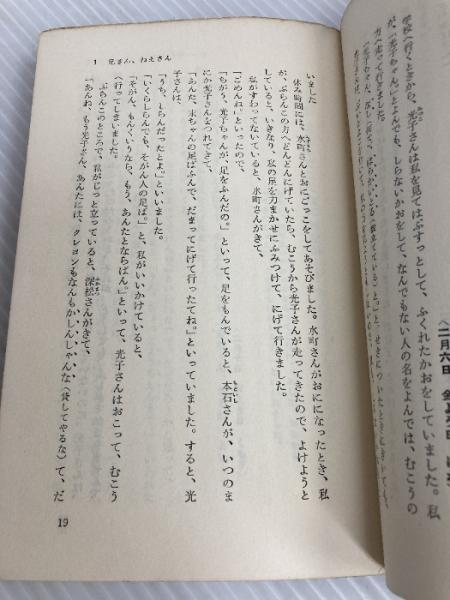 〈二月六日
学校へ行くときから、光子さんは私を見てはぶすっとして、ふくれたかおをしていました。私
が「光子ちゃん」とよんでも、しらないかおをして、なんでもない人の名をよんでは、むこうの
方へ走って行きました。
1 兄さん、ねえさん
いました
休み時間には、水町さんとおにごっこをしてあそびました。水町さんがおにになったとき、私
が、ぶらんこの方へどんどんにげていたら、むこうから光子さんが走ってきたので、よけようと
していると、いきなり、私の足を力まかせにふみつけて、にげて行きました。
私がすわってないていると、水町さんがきて、
「ごめんね」といったので、
「ちがう、光子ちゃんが、足をふんだの。」といって、足をもんでいると、本石さんが、いつのま
にか光子さんをつれてきて、
「あんた、末ちゃんの足ばふんで、だまってにげて行ったてね。」といっていました。すると、光
子さんは、
「うち、しらんだったとよ。」といいました。
「いくらしらんでも、そがん人の足ば」と、私がいいかけていると、
「そがん、もんくいうなら、もう、あんたとならばん。」といって、光子さんはおこって、むこう
へ行ってしまいました。
ぶらんこのところで、私がじっと立っていると、深松さんがきて、
「あんね、もう光子さん、あんたには、クレヨンもなんもかいんしゃんな(貸してやるな)て、だ
19